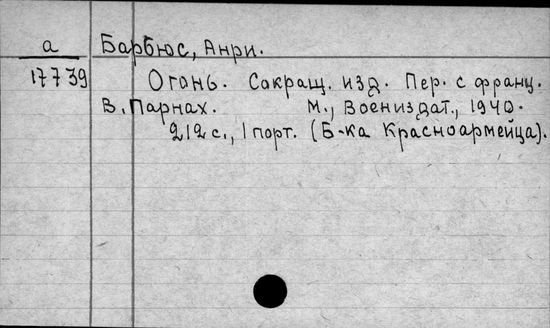 а Барбюс, Анри.
17739 Огонь. Сокращ. изд. Пер. с франц.
В. Парнах. М., Воениздат., 1940.
212 с., 1 порт. (Б-ка Красноармейца).